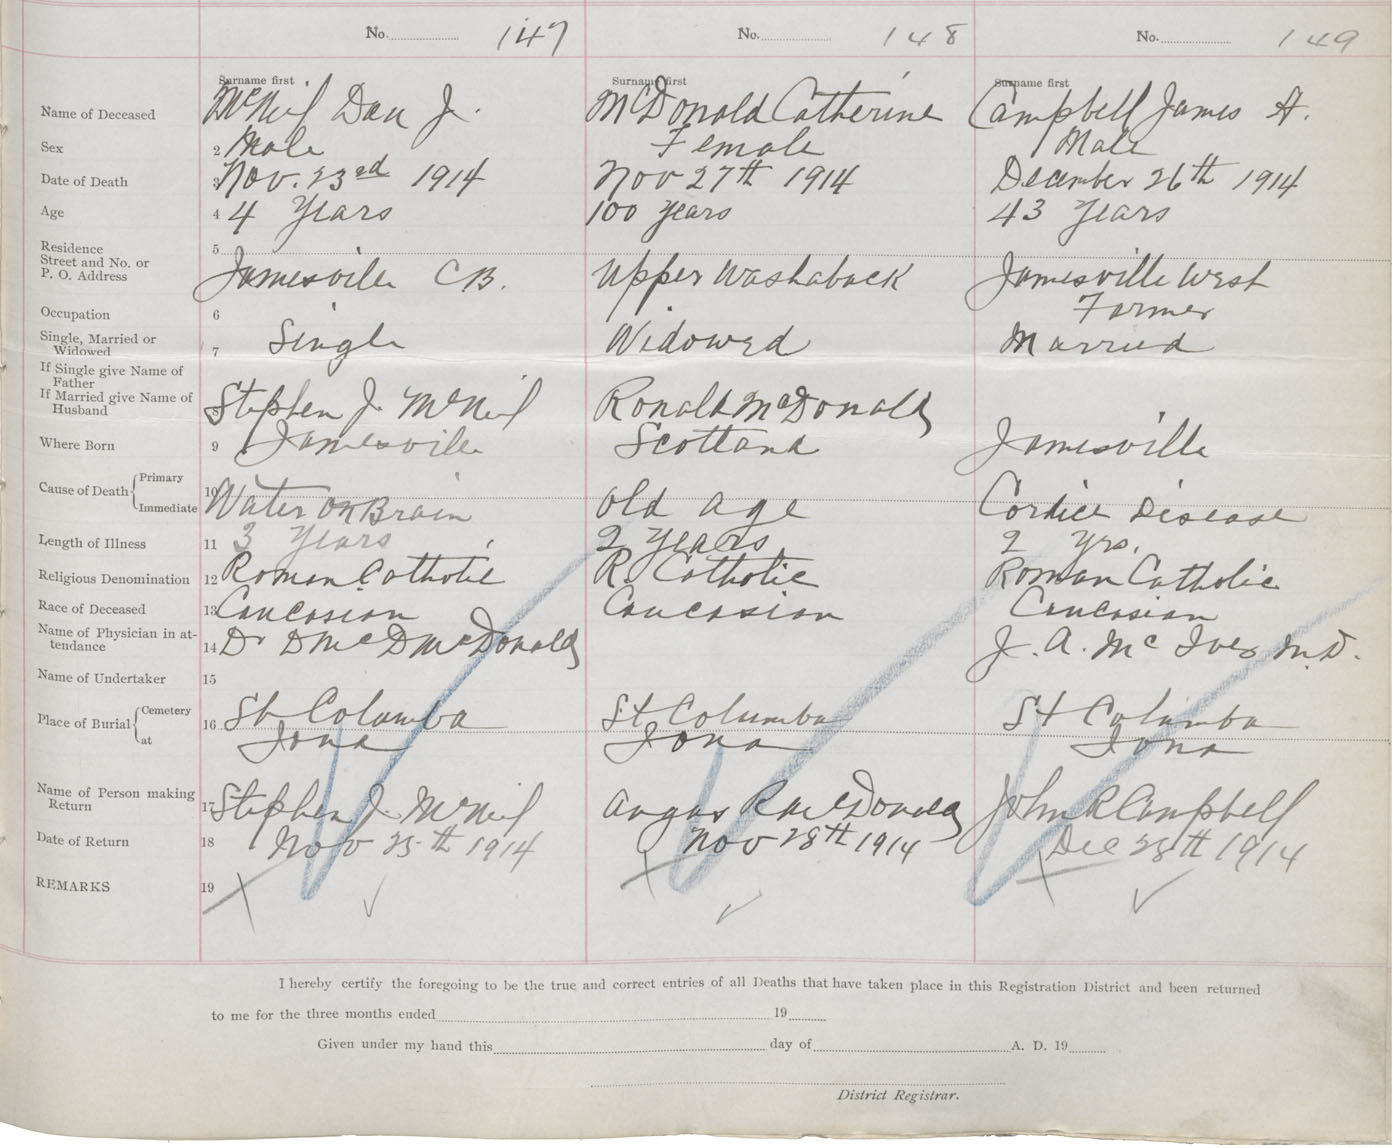 No. 147 No. 148 No. 149
Surname first Surname first Surname first
Name of Deceased McNeil Dan J. McDonald Catherine Campbell James A.
Sex 2 Male Female Male
Date of Death 3 Nov. 23rd 1914 Nov 27th 1914 December 26th 1914
Age 4 4 Years 100 years 43 Years
Residence 5
Street and No. or
P. O. Address Jamesville CB. Upper Washaback Jamesville West
Occupation 6 Farmer
Single, Married or
Widowed 7 Single Widowed Married
If Single give Name of
Father
If Married give Name of
Husband 8 Stephen J. McNeil Ronald McDonald
Where Born 9 Jamesville Scotland Jamesville
Cause of Death Primary
Immediate 10 Water on Brain Old age Disease
Length of Illness 11 3 Years 2 Years 2 yrs.
Religious Denomination 12 Roman Catholic R. Catholic Roman Catholic
Race of Deceased 13 Caucasian Caucasian Caucasian
Name of Physician in at-
tendance 14 Dr D McD McDonald J. A. Mc Iver M.D.
Name of Undertaker 15
Place of Burial Cemetery 16 St Columba St Columba St Columba
at Iona Iona Iona
Name of Person making
Return 17 Stephen J. McNeil Angus R McDonald John R Campbell
Date of Return 18 Nov 25th 1914 Nov 28th 1914 Dec 28th 1914
REMARKS 19
I hereby certify the foregoing to be the true and correct entries of all Deaths that have taken place in this Registration District and been returned
to me for the three months ended 19
Given under my hand this day of A. D. 19
District Registrar.